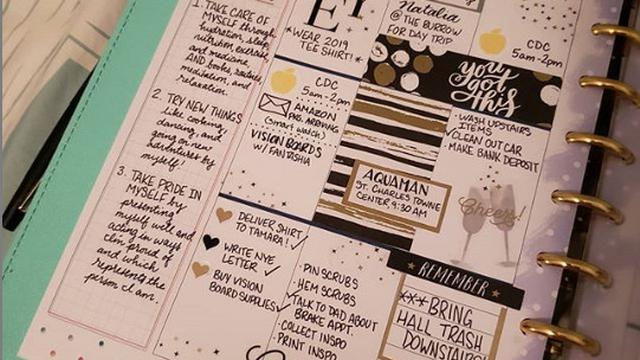 1. TAKE CARE OF
MYSELF through
hydration, sleep,
nutrition, exercise
and medicine,
AND books, nature,
meditation, and
relaxation.
2. TRY NEW THINGS
like cooking,
dancing, and
going on new
adventures by
myself!
3. TAKE PRIDE IN
MYSELF by
presenting
myself well and
acting in ways
I'm proud of
and which
represent the
person I am.
*WEAR 2019
TEE SHIRT!*
CDC
5am-2pm
AMAZON
PKG. ARRIVING
(smart watch)
VISION BOARDS
W/ FANTASHIA
DELIVER SHIRT
TO TAMARA!
WRITE NYE
LETTER
BUY VISION
BOARD SUPPLIES
Natalia
@ THE BURROW
FOR DAY TRIP
AQUAMAN
ST. CHARLES TOWNE
CENTER 9:30 AM
· PIN SCRUBS
· HEM SCRUBS
TALK TO DAD ABOUT
BRAKE APPT.
· COLLECT INSPO
· PRINT INSPO
CDC
5am-2pm
you
got
this
· WASH UPSTAIRS
ITEMS
CLEAN OUT CAR
· MAKE BANK DEPOSIT
Cheers!
REMEMBER
***BRING
HALL TRASH
DOWNSTAIRS